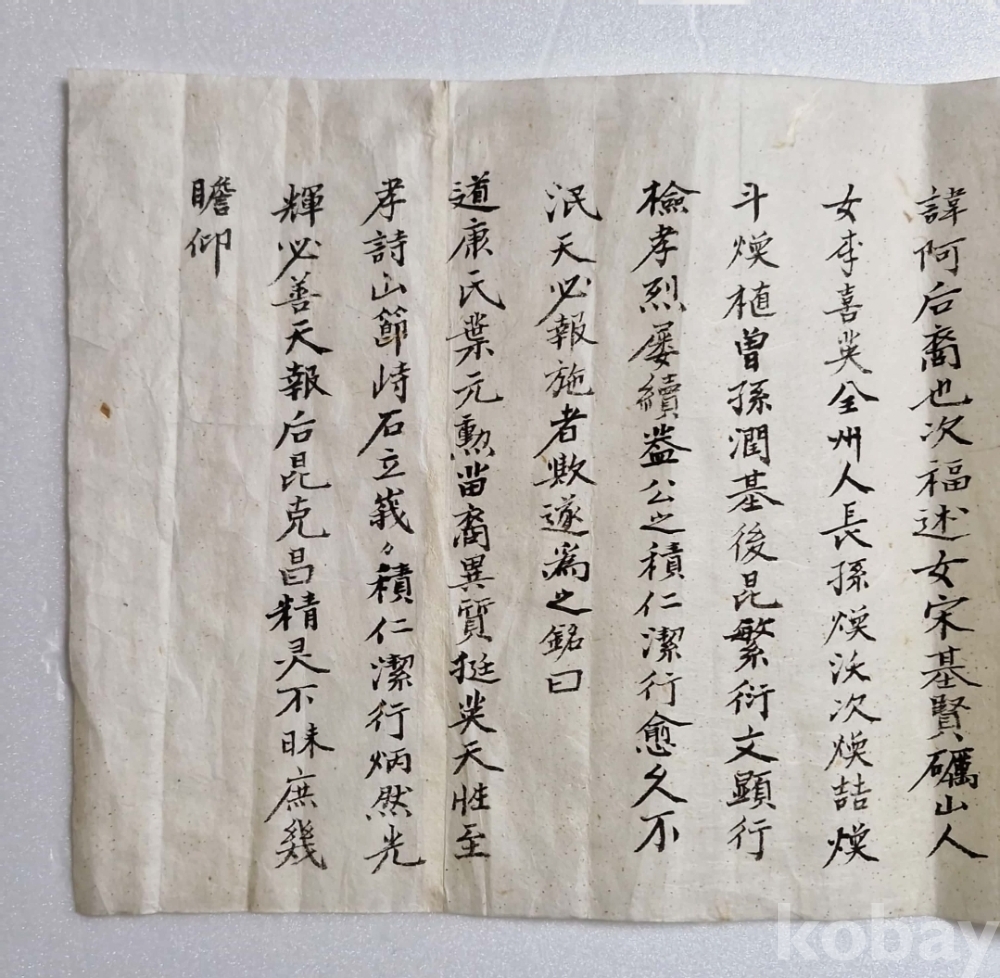 諱阿后裔也次福述女宋基賢礪山人
女李喜英全州人長孫煐沃次煥喆煐
斗煐植曾孫潤基後昆繁衍文顯行
檢孝烈屡續盖公之積仁潔行愈久不
泯天必報施者歟遂爲之銘曰
道康氏葉元勲苗裔異質挺英天性至
孝詩山節峙石立義々積仁潔行炳然光
輝必善天報后昆克昌精灵不昧庶幾
瞻仰
kobay